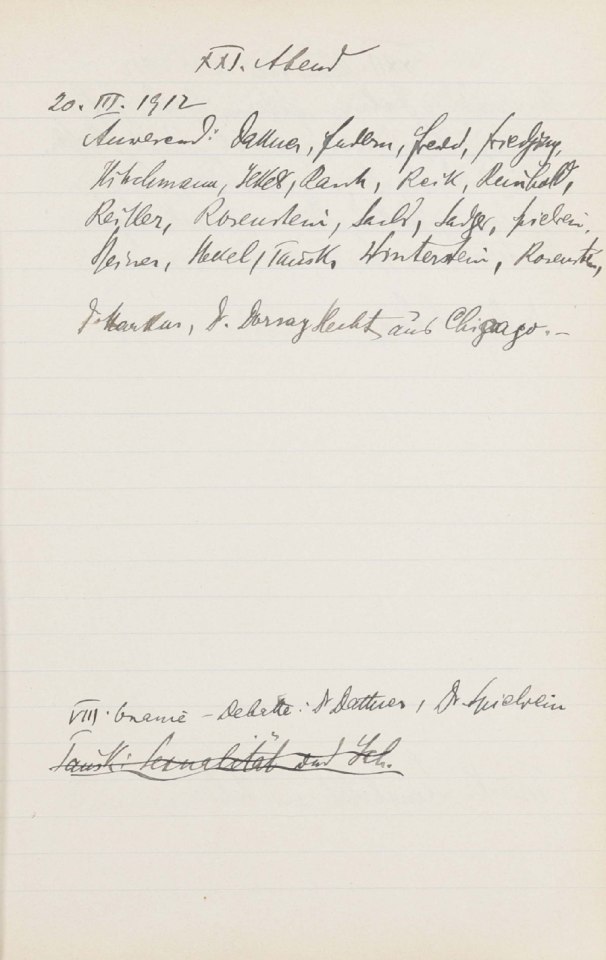 XXI. Abend
20. III. 1912
Anwesend: Dattner, Federn, Freud, Friedjung,
Hitschmann, Jekels, Rank, Reik, Reinhold,
Reitler, Rosenstein, Sachs, Sadger, Spielrein,
Steiner, Stekel, Tausk, Winterstein, Rosenstein,
Dr Markus, Dr. Dorsay Hecht aus Chigago. –
VIII. Onanie – Debatte: Dr Dattner, Dr Spielrein
Tausk: Sexualität und Ich.